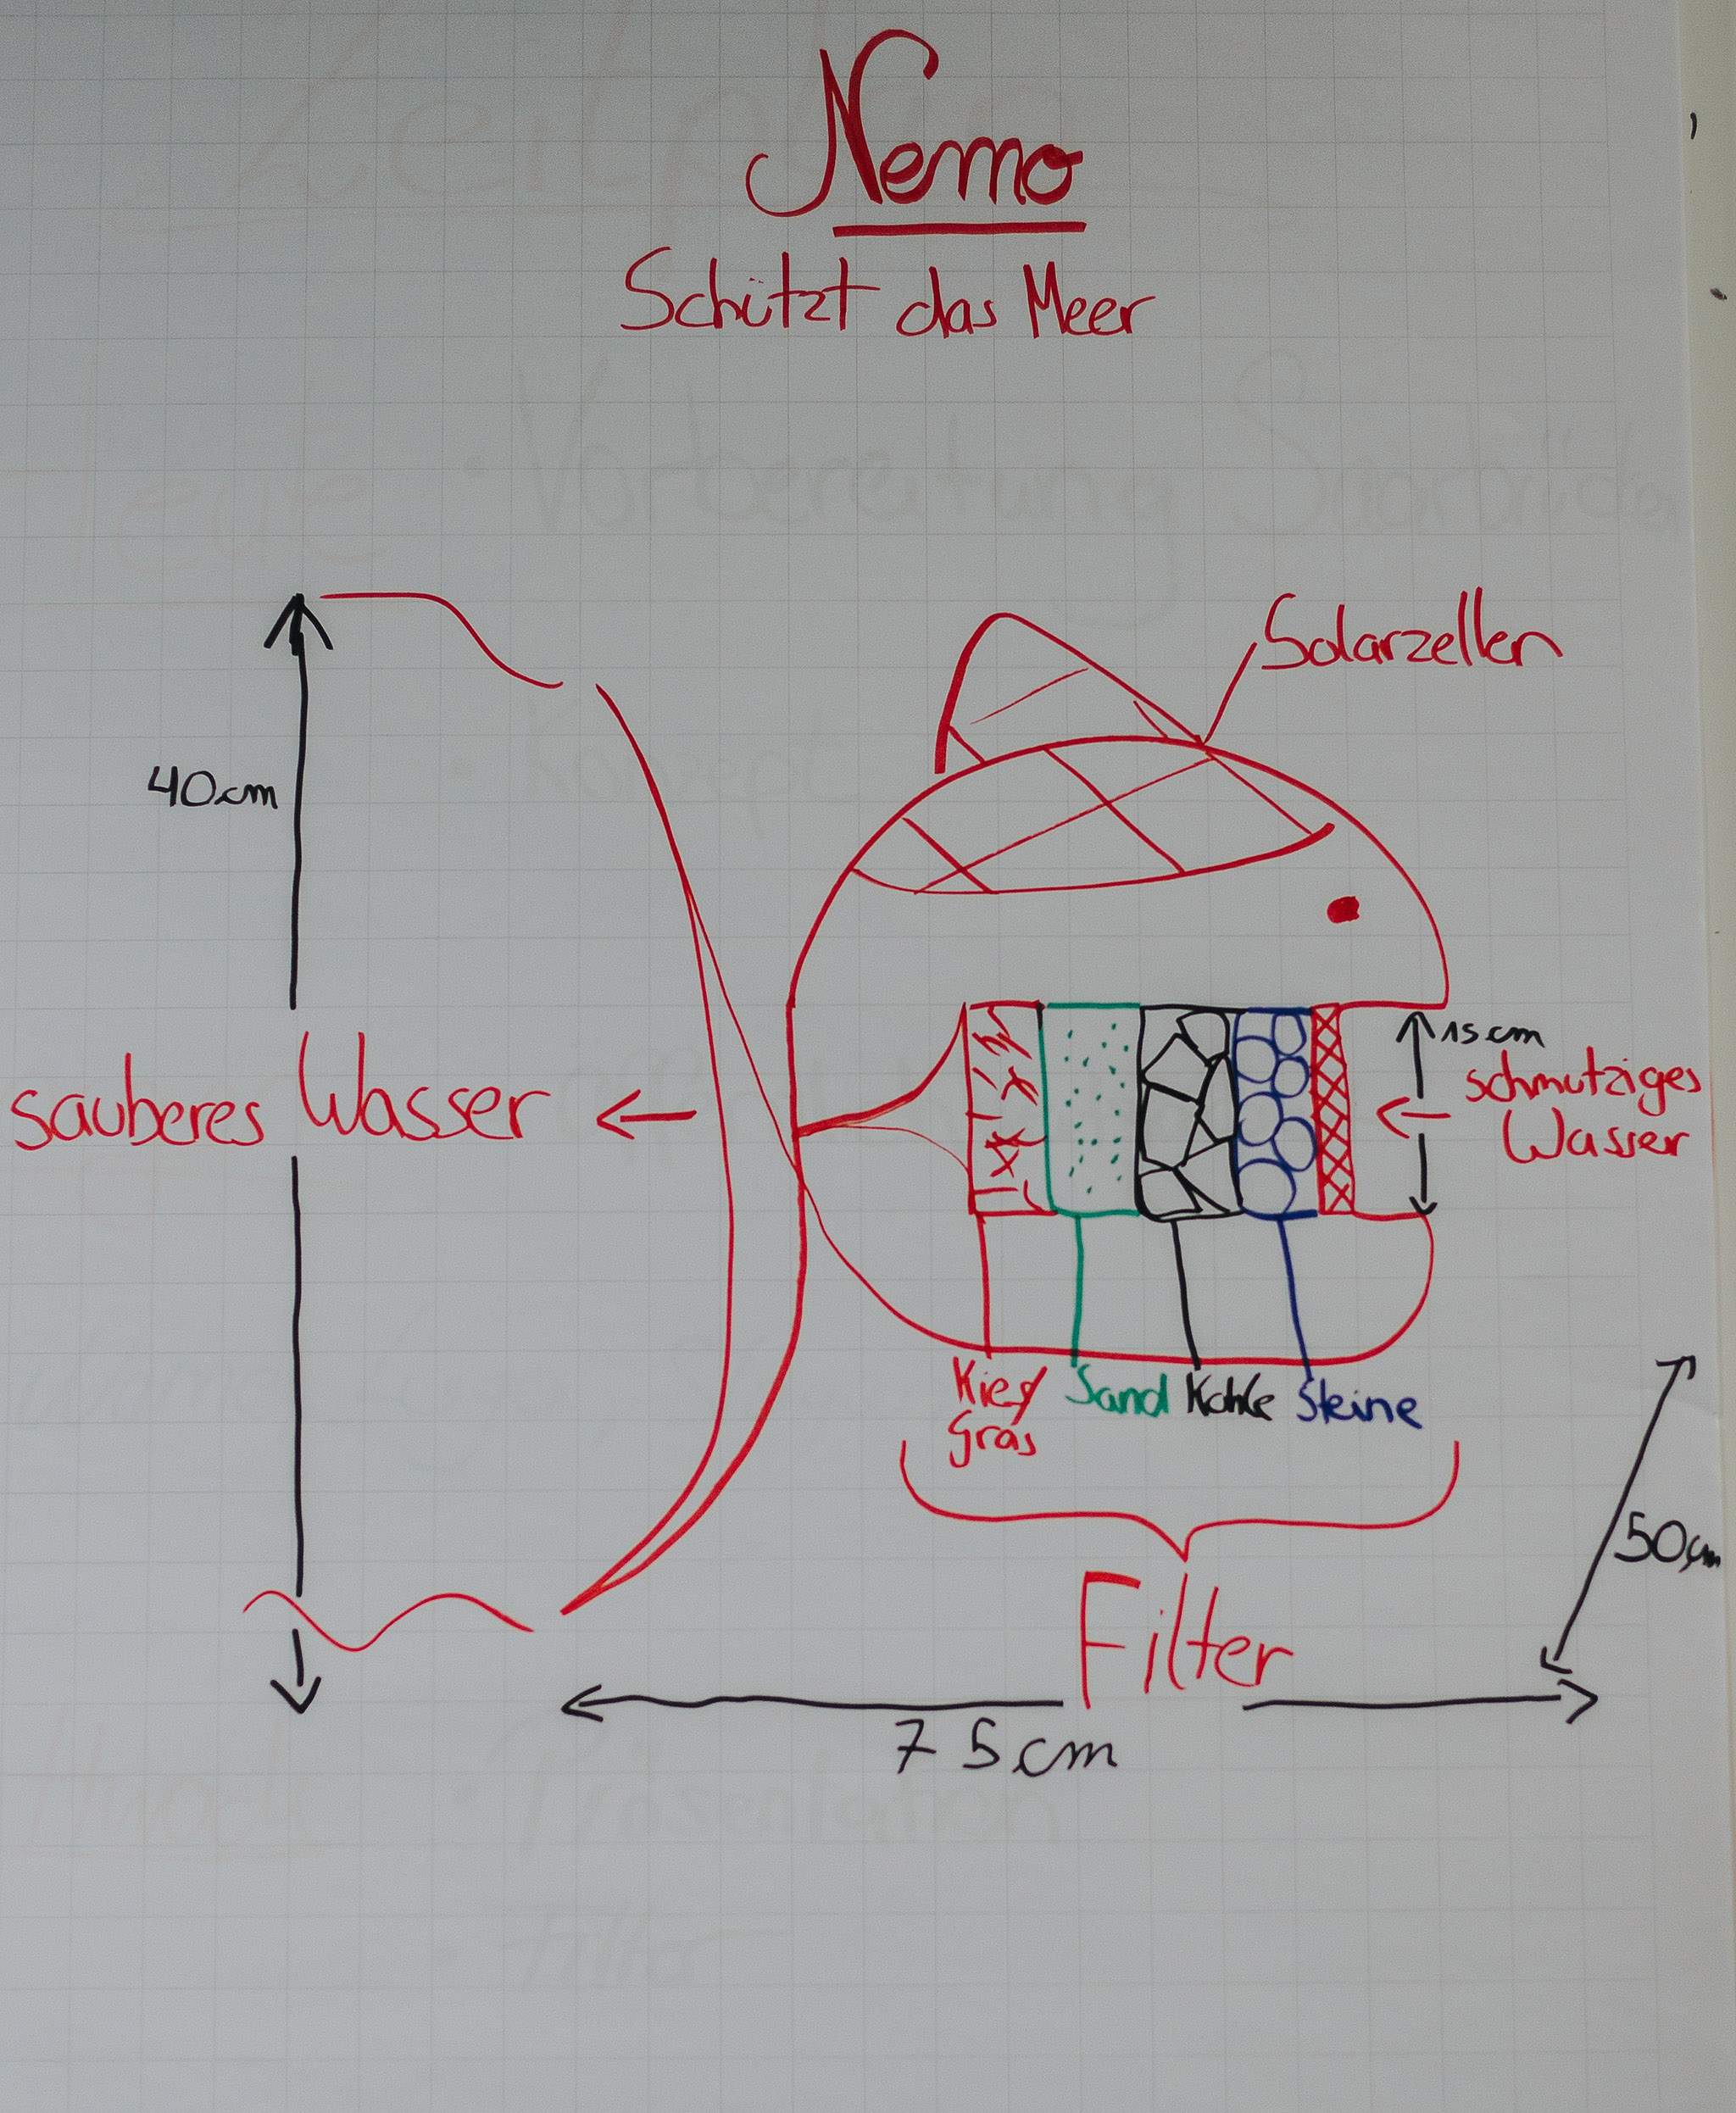 Nemo
Schützt das Meer
Solarzellen
40cm
15cm
sauberes Wasser
schmutziges
Wasser
Kies/
Gras
Sand
Kohle
Steine
50cm
Filter
75cm
Vorbereitung
Konzept
Präsentation